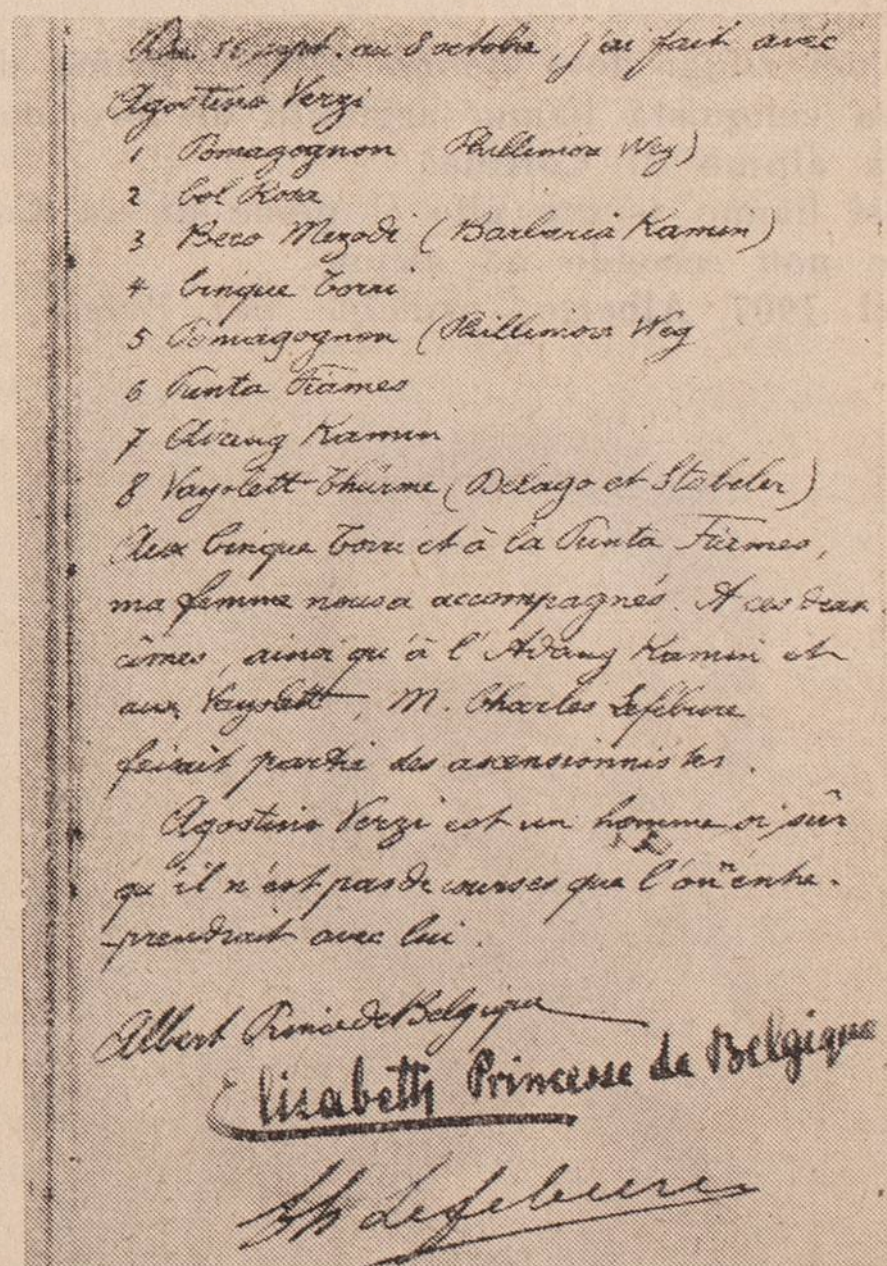 Du 16 sept. au 8 octobre, j'ai fait avec
Agostino Verzi
1 Pomagognon Phillimore Weg)
2 Col Rosa
3 Beco Mezodi (Barbaria Kamin)
4 Cinque Torri
5 Pomagognon (Phillimore Weg
6 Punta Fiames
7 Adang Kamin
8 Vayolett-Thürme (Delago et Stabeler)
Aux Cinque Torri et à la Punta Fiames,
ma femme nous a accompagnés. A ces deux
cîmes, ainsi qu'à l'Adang Kamin et
aux Vayolett, M. Charles Lefébure
faisait partie des ascensionnistes.
Agostino Verzi est un homme si sûr
qu'il n'est pas de courses que l'on n'entre-
-prendrait avec lui.
Albert Prince de Belgique
Elisabeth Princesse de Belgique
Ch Lefebure